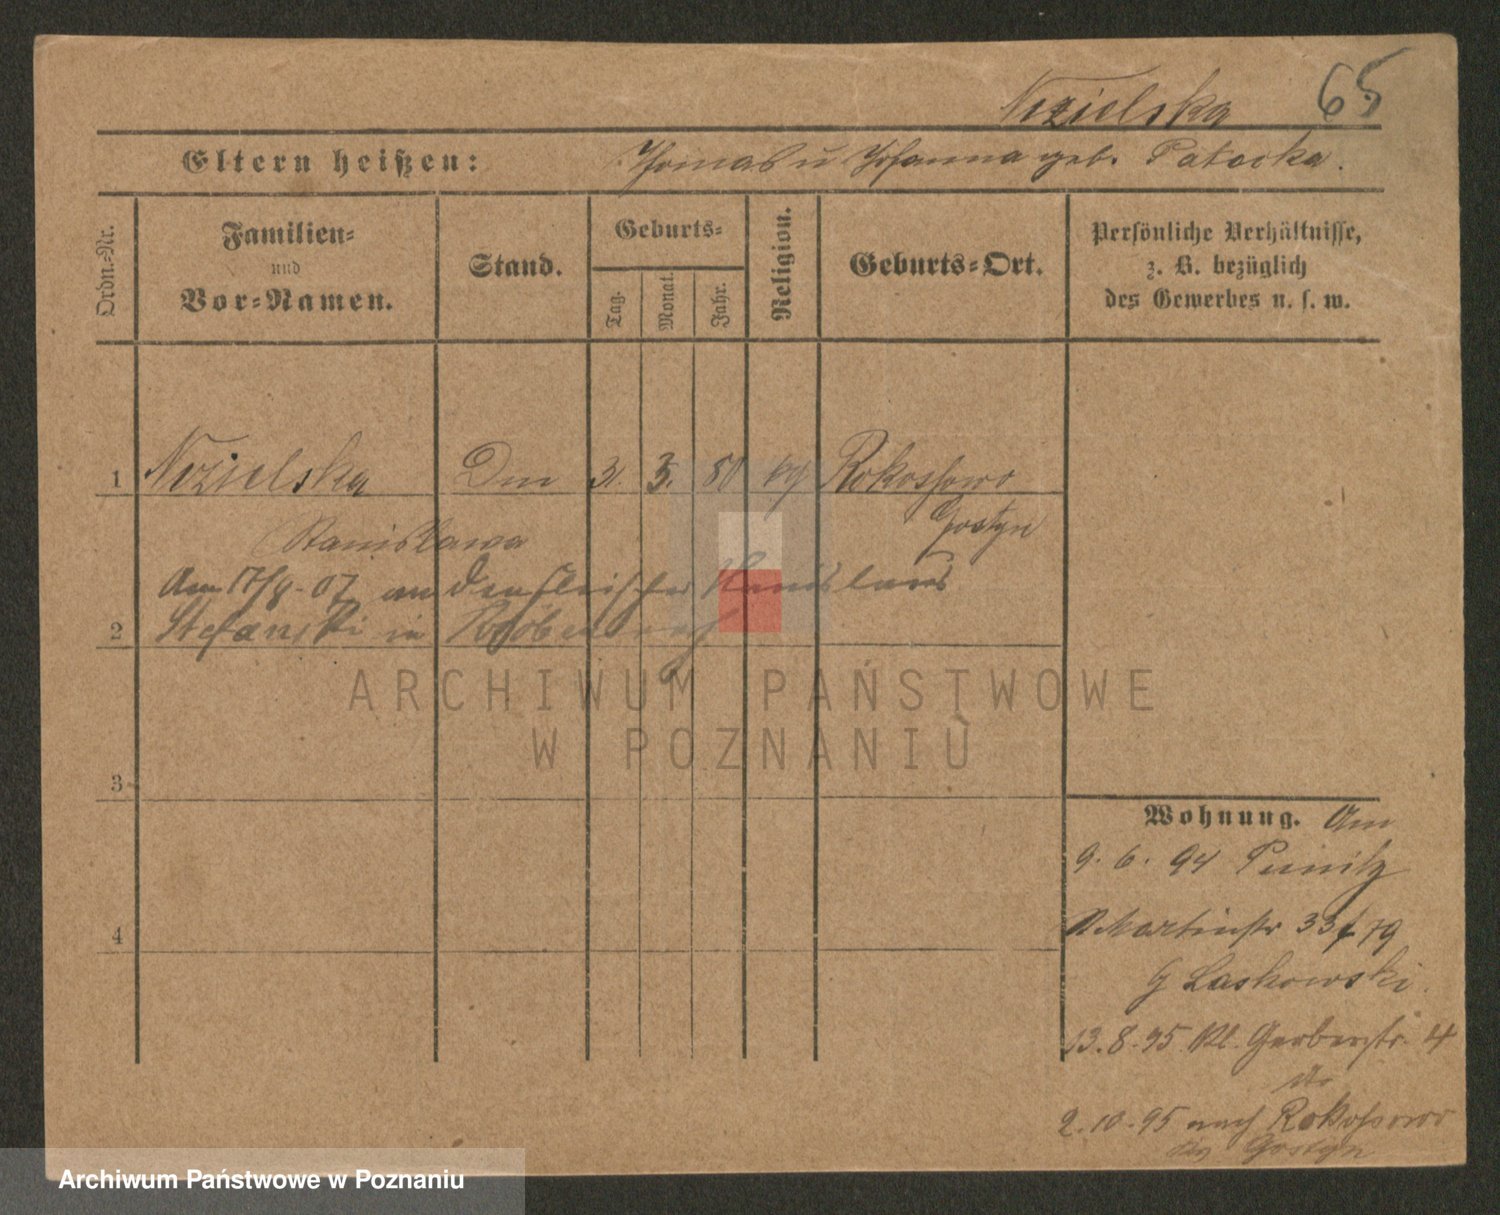 Nozielska 65
Eltern heißen: Thomas u Johanna geb. Patocka.
Ordn.-Nr.
Familien- und Vor-Namen.
Stand.
Geburts-
Tag. Monat. Jahr.
Religion.
Geburts-Ort.
Persönliche Verhältnisse,
z. B. bezüglich
des Gewerbes u. s. w.
1 Nozielska 3. 80 Rokossowo
Gostyn
Stanislawa
Am 17/8-07 an den Fleischer Stanislaus
2 Stefanski in
3
4
Wohnung. Am
9. 6. 94 Punitz
Martinstr 33
G Laskowski.
13.8.95 Kl. Gerberstr. 4
2.10.95 nach Rokossowo
Gostyn
ARCHIWUM PAŃSTWOWE
W POZNANIU
Archiwum Państwowe w Poznaniu